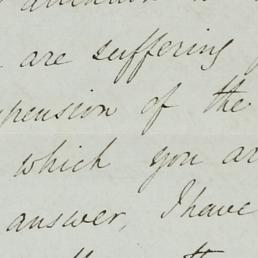 are suffering
pension of the
which you ar
answer, I have